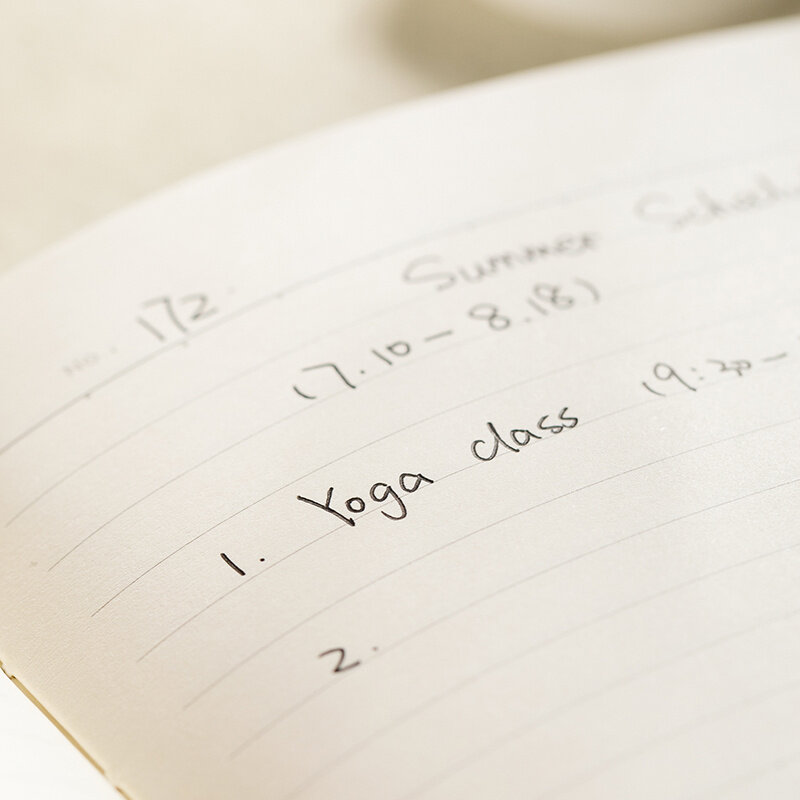 No. 172.
Summer
(7.10 - 8.18)
1. Yoga class (9:30 -
2.